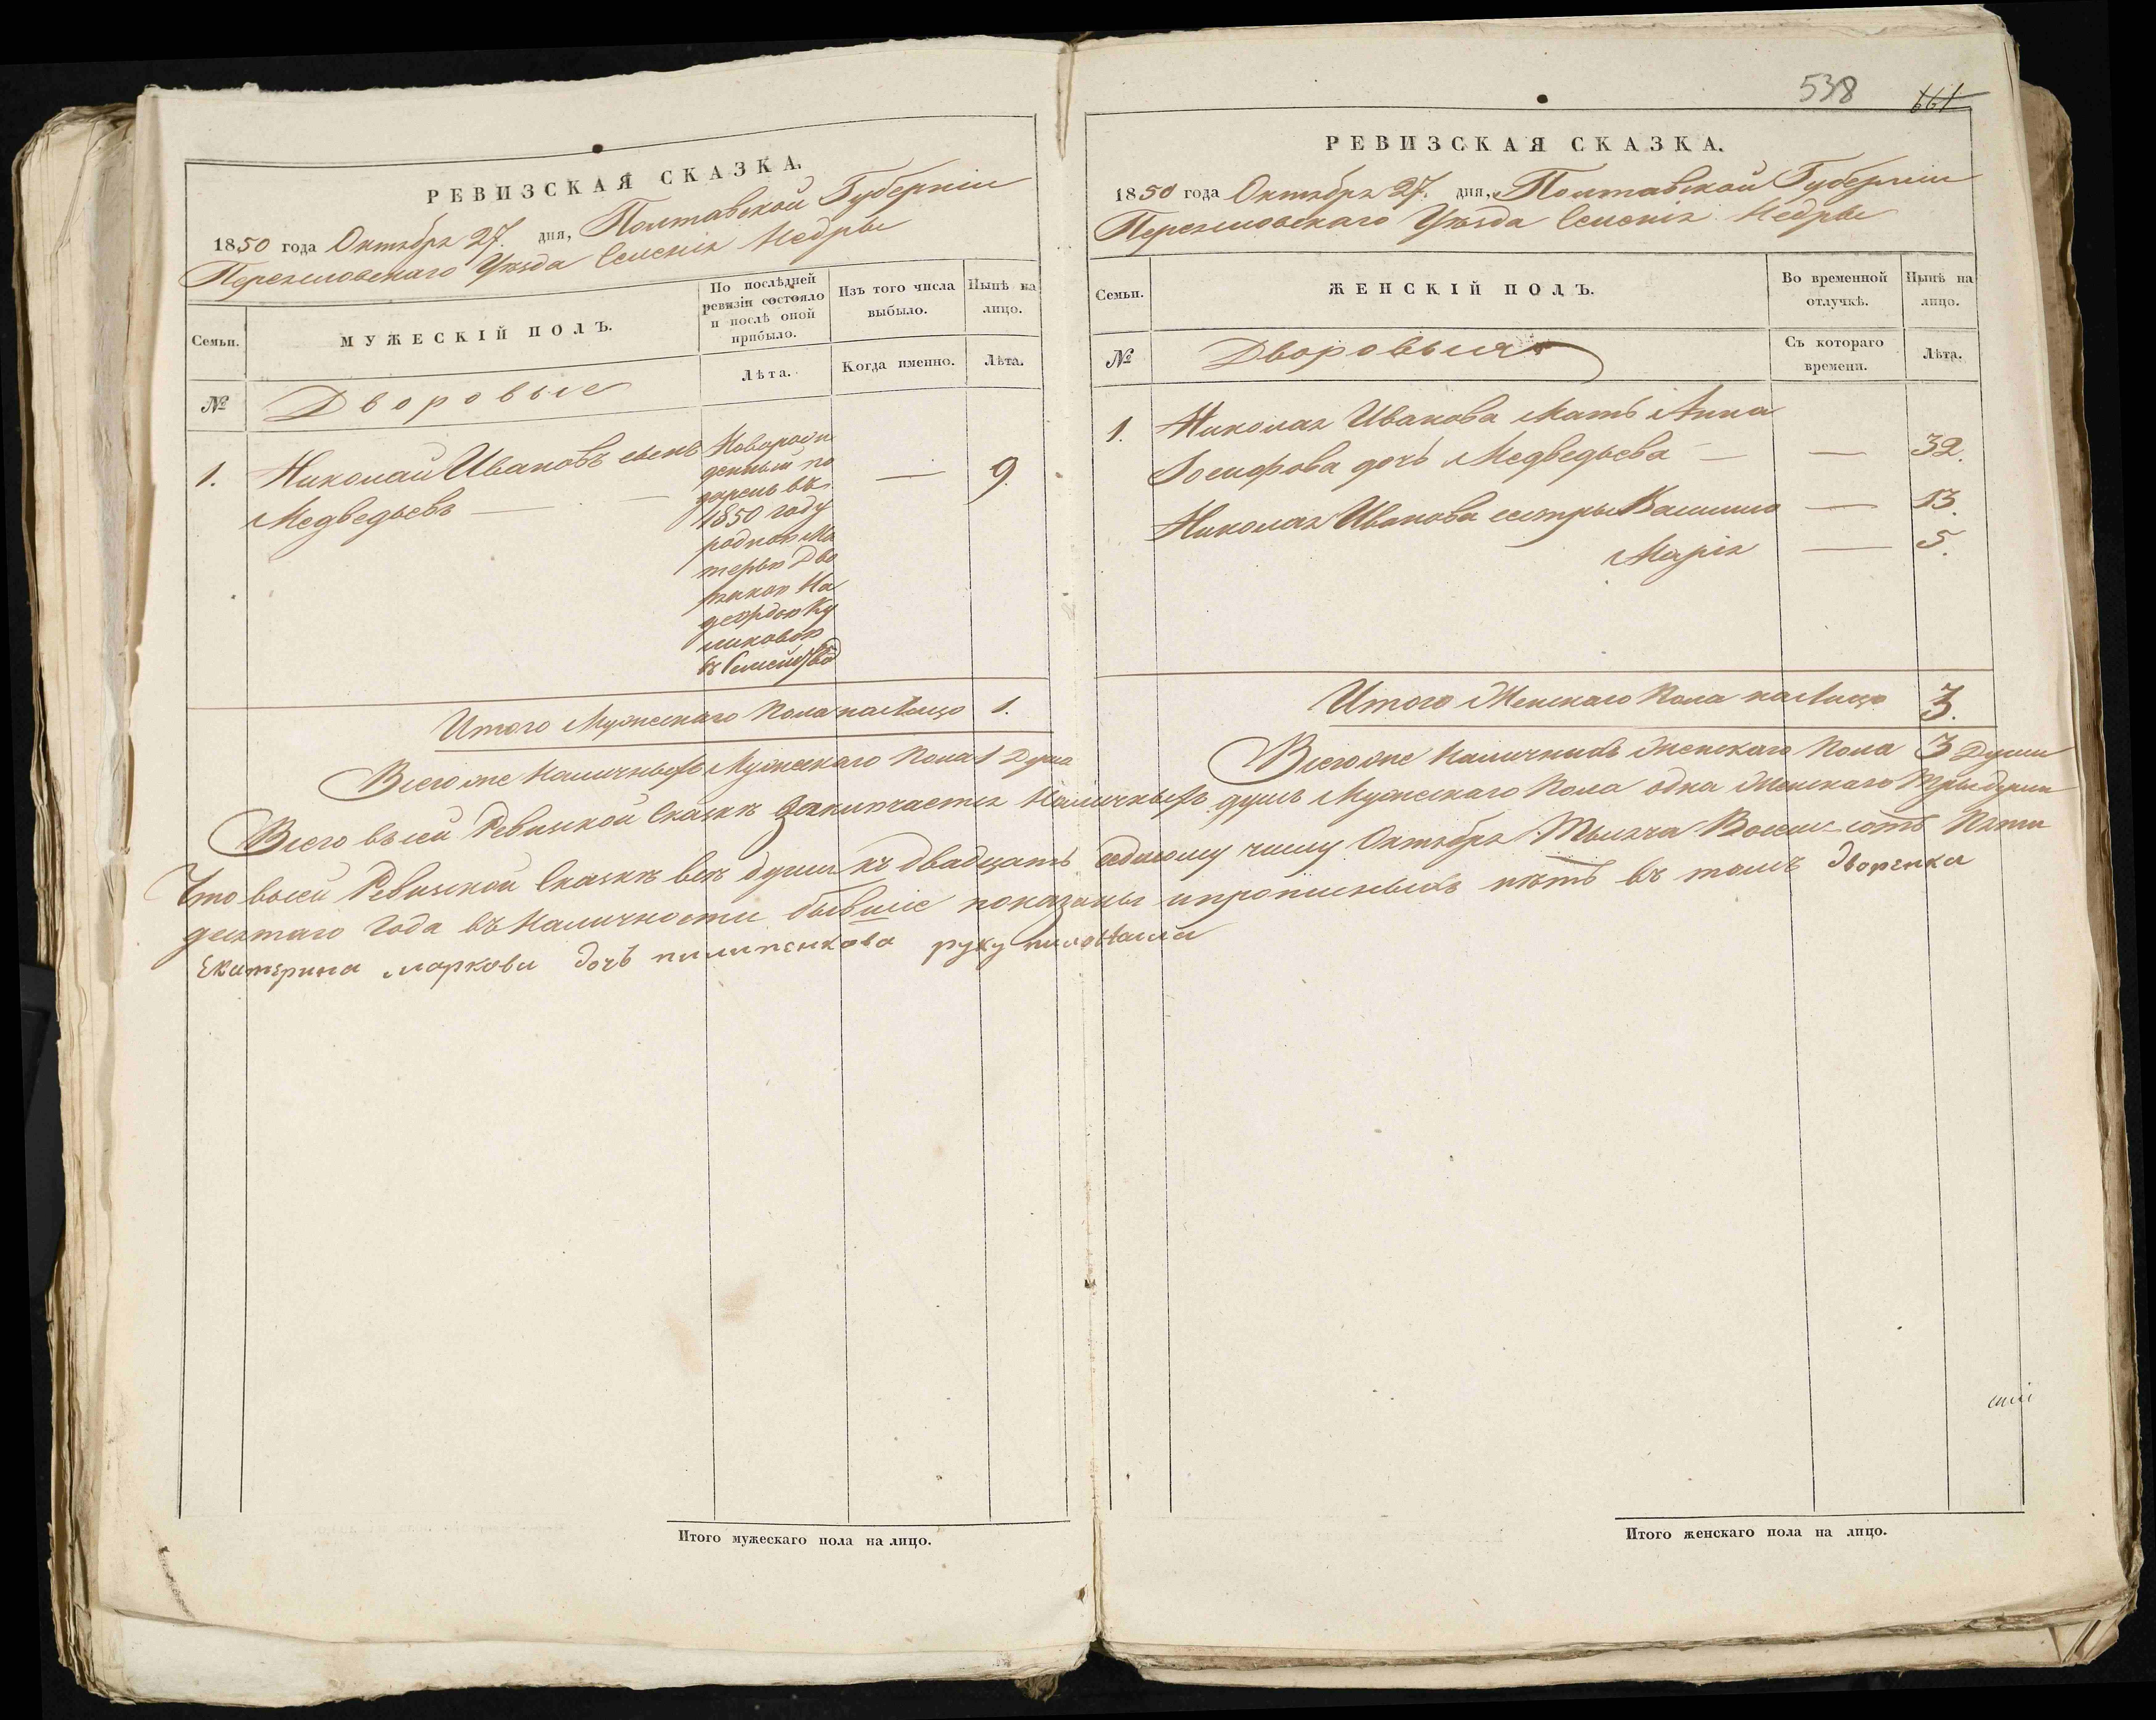 РЕВИЗСКАЯ СКАЗКА.
1850 года Октября 27. дня, Полтавской Губерніи
Переяловскаго Уѣзда Селенія Недры
Семьи.
МУЖЕСКІЙ ПОЛЪ.
По послѣдней
ревизіи состояло
и послѣ оной
прибыло.
Изъ того числа
выбыло.
Нынѣ на
лицо.
№
Дворовые
Лѣта.
Когда именно.
Лѣта.
1.
Николай Ивановъ сынъ
Медведьевъ
Новорож
денный по
дарень въ
1850 году
родною Ма
терью Дво
рянкою На
деждою Ку
ликовою
въ Семейство
9.
Итого Мужескаго Пола на Лицо 1.
Всего же Наличныхъ Мужескаго Пола 1 Душа
538
661
РЕВИЗСКАЯ СКАЗКА.
1850 года Октября 27. дня, Полтавской Губерніи
Переяловскаго Уѣзда Селенія Недры
Семьи.
ЖЕНСКІЙ ПОЛЪ.
Во временной
отлучкѣ.
Нынѣ на
лицо.
№
Дворовыя
Съ котораго
времени.
Лѣта.
1.
Николая Иванова Мать Анна
Иосифова дочь Медведьева — 32.
Николая Иванова сестры — 13.
Марія — 5.
Итого Женскаго Пола на Лицо 3.
Всего же Наличныхъ Женскаго Пола 3 Души
Всего въ сей Ревизской Сказкѣ Заключается Наличныхъ душъ Мужескаго Пола одна Женскаго Три души
Что въ сей Ревизской Сказкѣ всѣ души къ двадцать седьмому числу Октября Тысяча Восемь сотъ Пяти
десятаго Года въ Наличности бывшіе показаны и прописныхъ нѣтъ въ томъ дворянка
Екатерина маркова дочъ пилипенкова руку
Итого мужескаго пола на лицо.
Итого женскаго пола на лицо.